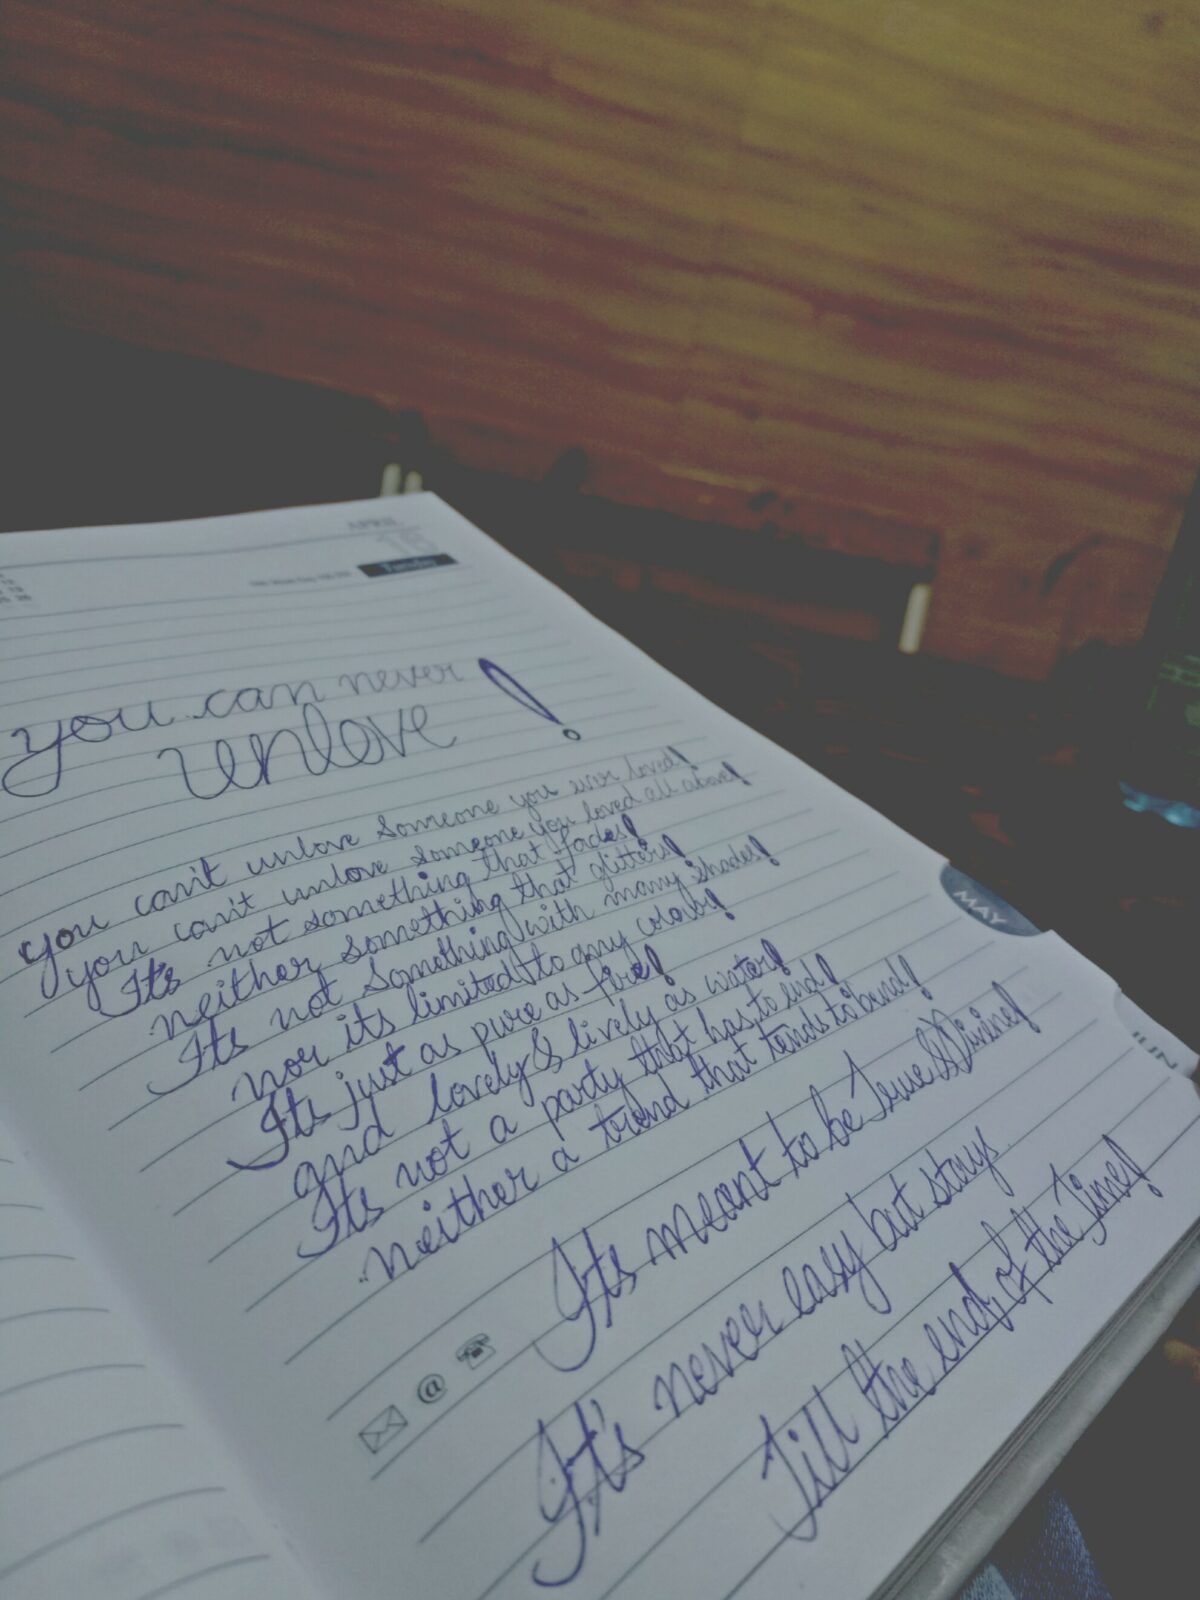 APRIL
15
Tuesday
you can never
unlove!
you can't unlove someone you ever loved!
you can't unlove someone you loved all above!
Its not something that fades!
neither something that glitters!
Its not something with many shades!
nor its limited to any
Its just as pure as fire!
and lovely & lively as water!
Its not a party that has to end!
neither a trend that tends to bend!
Its meant to be True & Divine!
It's never easy but stays
Till the end of the Time!
MAY
JUN